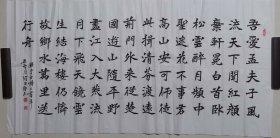 吾愛孟夫子風
流天下聞紅顏
棄軒冕白首臥
松雲醉月頻中
聖迷花不事君
高山安可仰徒
此揖清芬渡遠
荊門外來從楚
國遊山隨平野
盡江入大荒流
月下飛天鏡雲
生結海樓仍憐
故鄉水萬里送
行舟